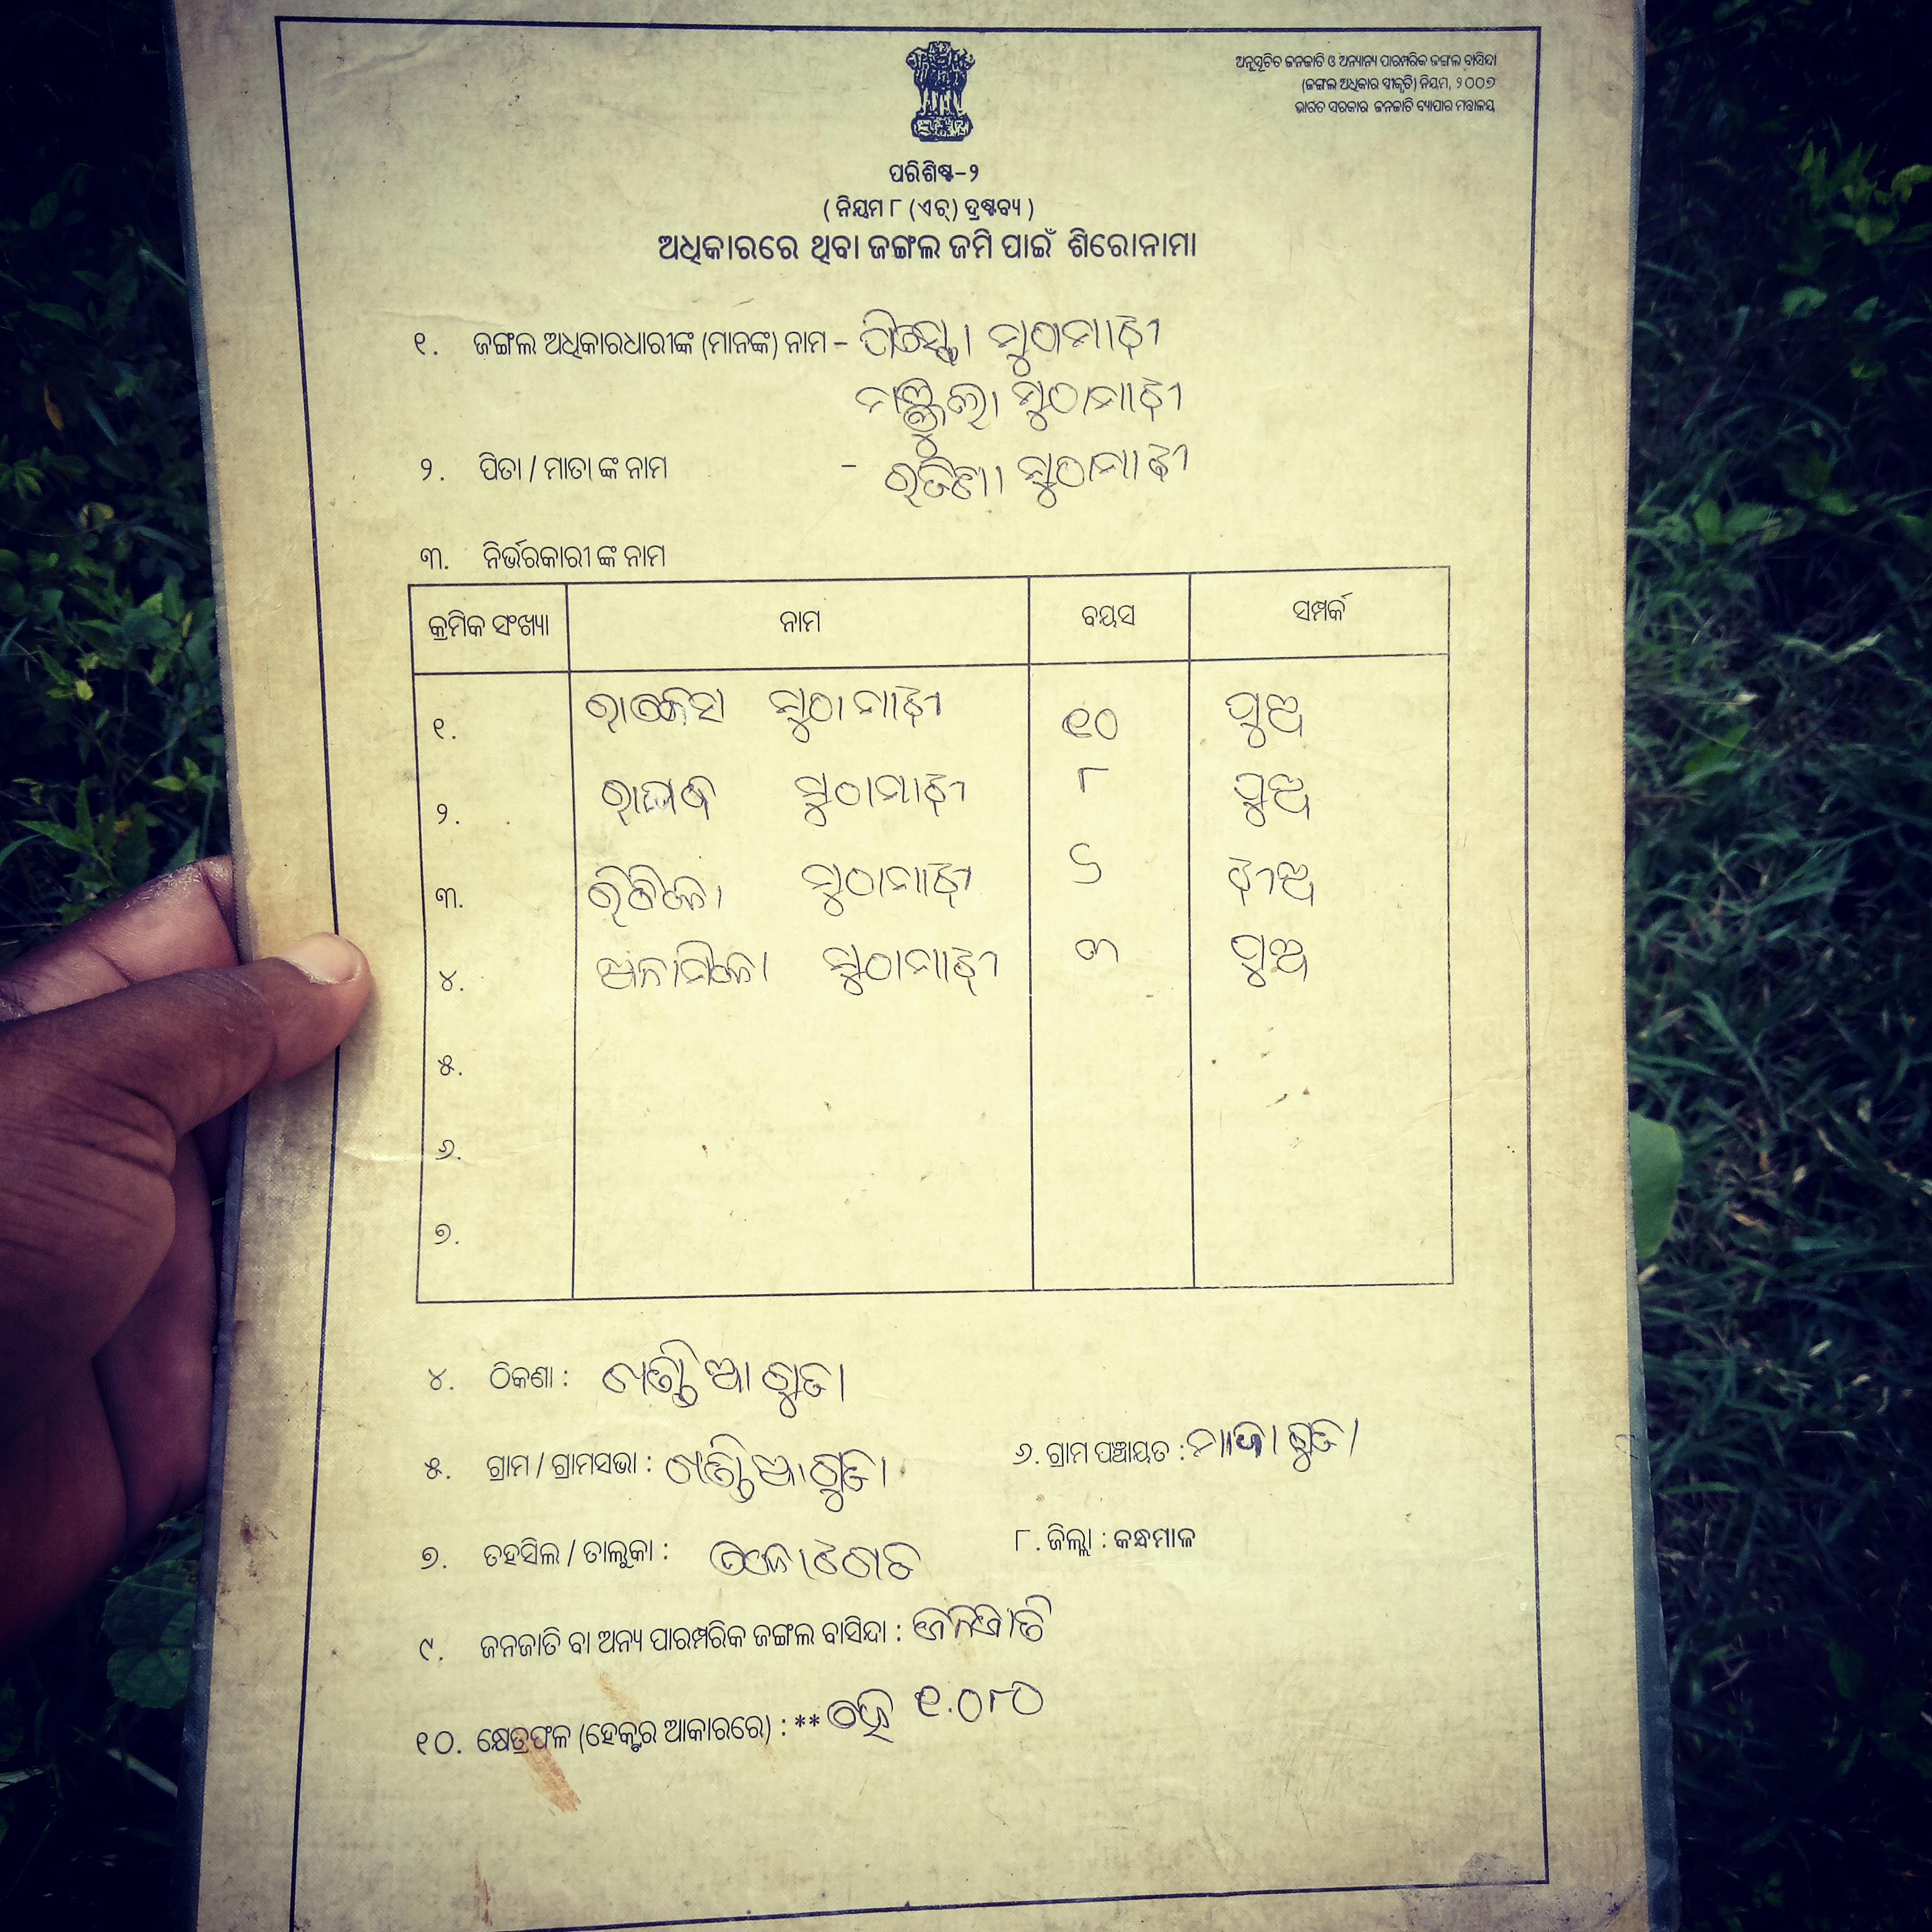 ଅନୁସୂଚିତ ଜନଜାତି ଓ ଅନ୍ୟାନ୍ୟ ପାରମ୍ପରିକ ଜଙ୍ଗଲ ବାସିନ୍ଦା
(ଜଙ୍ଗଲ ଅଧିକାର ସ୍ୱୀକୃତି) ନିୟମ, ୨୦୦୭
ଭାରତ ସରକାର ଜନଜାତି ବ୍ୟାପାର ମନ୍ତ୍ରାଳୟ
ପରିଶିଷ୍ଟ-୨
( ନିୟମ ୮ (ଏଚ୍) ଦ୍ରଷ୍ଟବ୍ୟ )
ଅଧିକାରରେ ଥିବା ଜଙ୍ଗଲ ଜମି ପାଇଁ ଶିରୋନାମା
୧. ଜଙ୍ଗଲ ଅଧିକାରଧାରୀଙ୍କ (ମାନଙ୍କ) ନାମ - ମୁଠାମାଝୀ
ମଞ୍ଜୁଳା ମୁଠାମାଝୀ
୨. ପିତା / ମାତା ଙ୍କ ନାମ - ମୁଠାମାଝୀ
୩. ନିର୍ଭରକାରୀ ଙ୍କ ନାମ
କ୍ରମିକ ସଂଖ୍ୟା ନାମ ବୟସ ସମ୍ପର୍କ
୧. ରାକେସ ମୁଠାମାଝୀ ୧୦ ପୁଅ
୨. ରାଘବ ମୁଠାମାଝୀ ୮ ପୁଅ
୩. ମୁଠାମାଝୀ ୬ ଝୀଅ
୪. ମୁଠାମାଝୀ ୩ ପୁଅ
୫.
୬.
୭.
୪. ଠିକଣା :
୫. ଗ୍ରାମ / ଗ୍ରାମସଭା :
୬. ଗ୍ରାମ ପଞ୍ଚାୟତ :
୭. ତହସିଲ / ତାଲୁକା :
୮. ଜିଲ୍ଲା : କନ୍ଧମାଳ
୯. ଜନଜାତି ବା ଅନ୍ୟ ପାରମ୍ପରିକ ଜଙ୍ଗଲ ବାସିନ୍ଦା : ଜନଜାତି
୧୦. କ୍ଷେତ୍ରଫଳ (ହେକ୍ଟର ଆକାରରେ) : ** ହେ ୧.୦୮୦